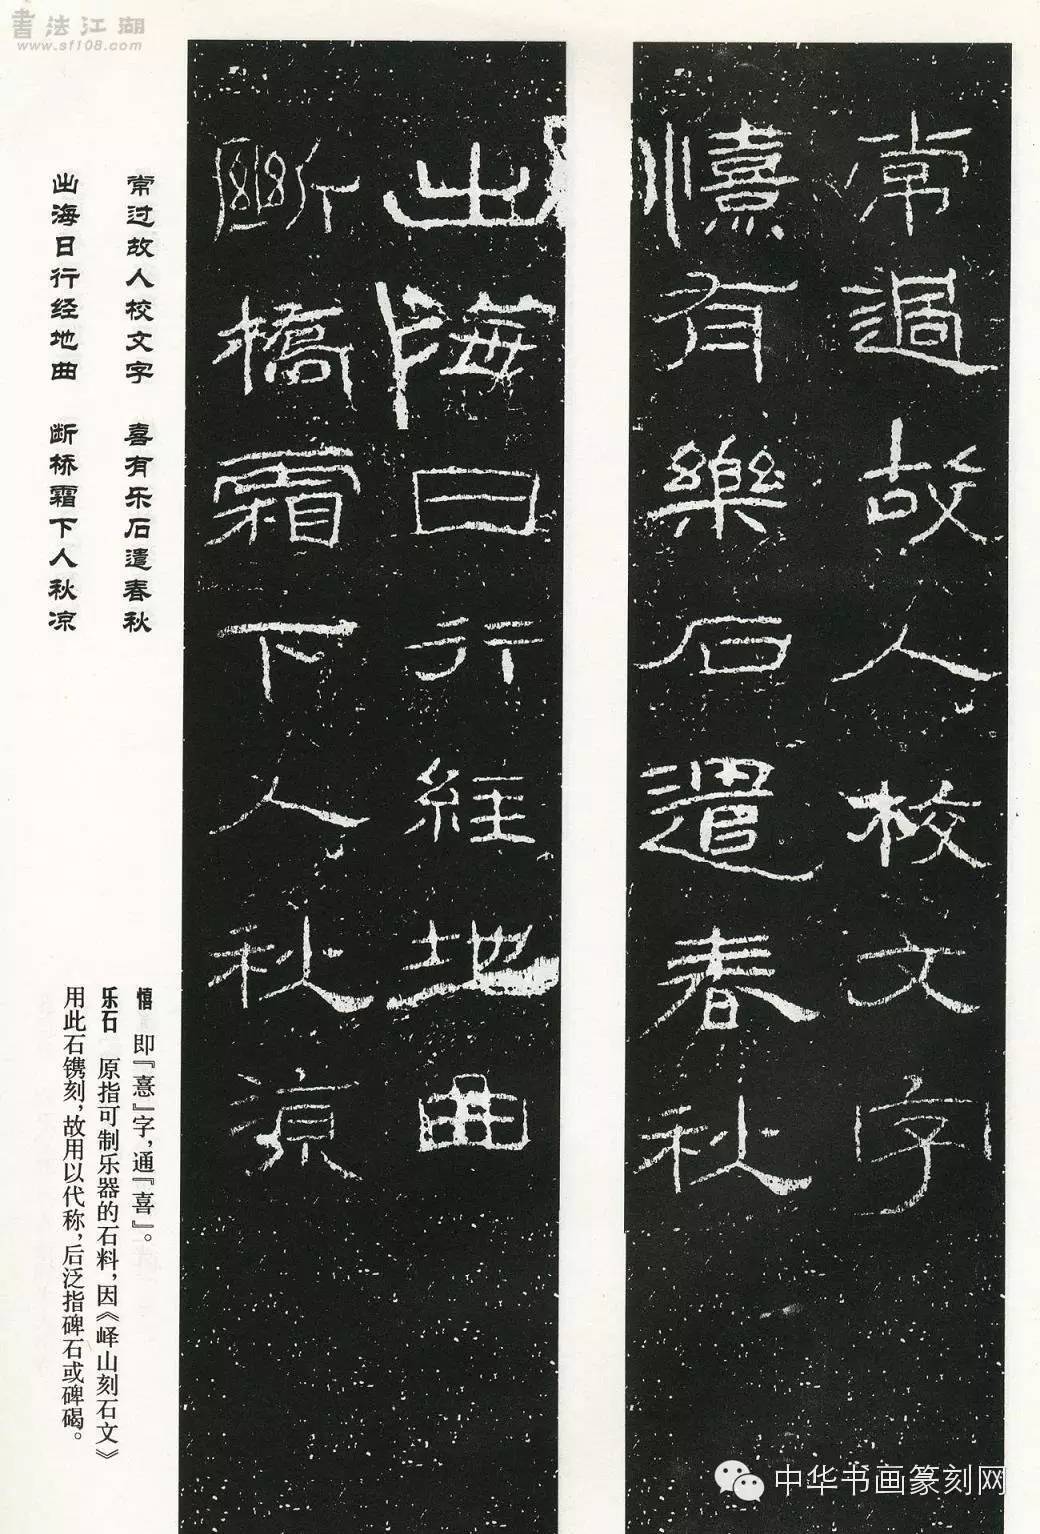 書法江湖
www.sf108.com
常過故人校文字
憙有樂石遣春秋
出海日行経地曲
斷橋霜下人秋涼
常过故人校文字 喜有乐石遣春秋
出海日行经地曲 断桥霜下人秋凉
憘 即『憙』字，通『喜』。
乐石 原指可制乐器的石料，因《峄山刻石文》
用此石镌刻，故用以代称，后泛指碑石或碑碣。
中华书画篆刻网